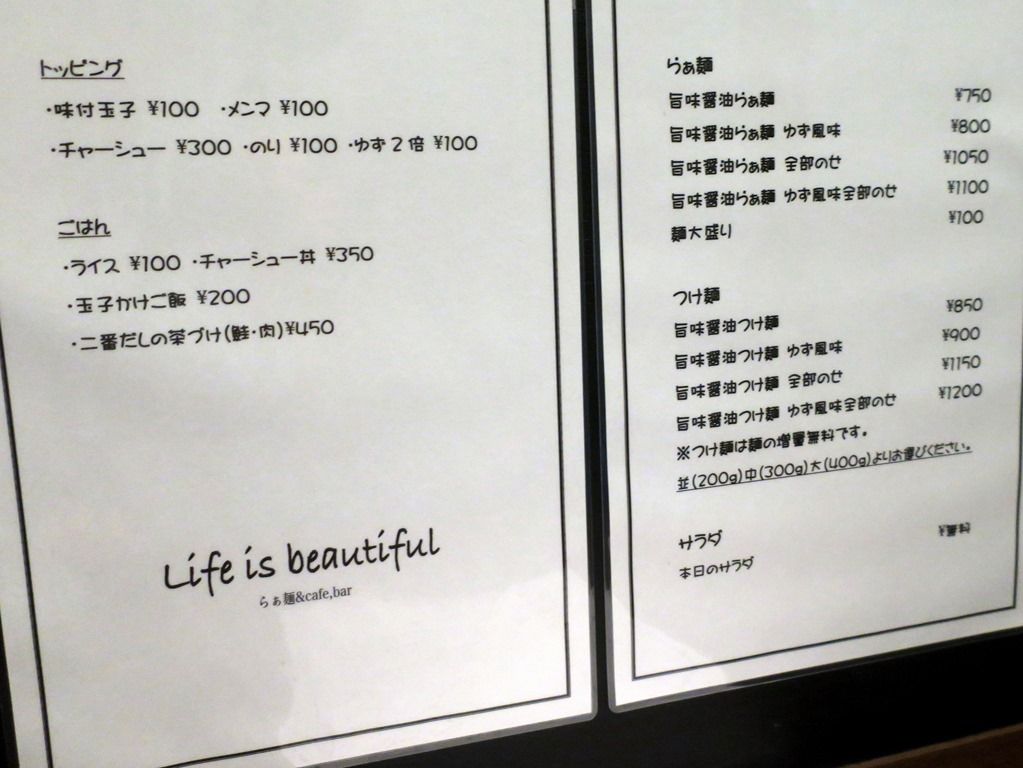 トッピング
・味付玉子 ¥100 ・メンマ ¥100
・チャーシュー ¥300 ・のり ¥100 ・ゆず2倍 ¥100
ごはん
・ライス ¥100 ・チャーシュー丼 ¥350
・玉子かけご飯 ¥200
・二番だしの茶づけ(鮭・肉)¥450
Life is beautiful
らぁ麺&cafe,bar
らぁ麺
旨味醤油らぁ麺 ¥750
旨味醤油らぁ麺 ゆず風味 ¥800
旨味醤油らぁ麺 全部のせ ¥1050
旨味醤油らぁ麺 ゆず風味全部のせ ¥1100
麺大盛り ¥100
つけ麺
旨味醤油つけ麺 ¥850
旨味醤油つけ麺 ゆず風味 ¥900
旨味醤油つけ麺 全部のせ ¥1150
旨味醤油つけ麺 ゆず風味全部のせ ¥1200
※つけ麺は麺の増量無料です。
並(200g)中(300g)大(400g)よりお選びください。
サラダ
本日のサラダ